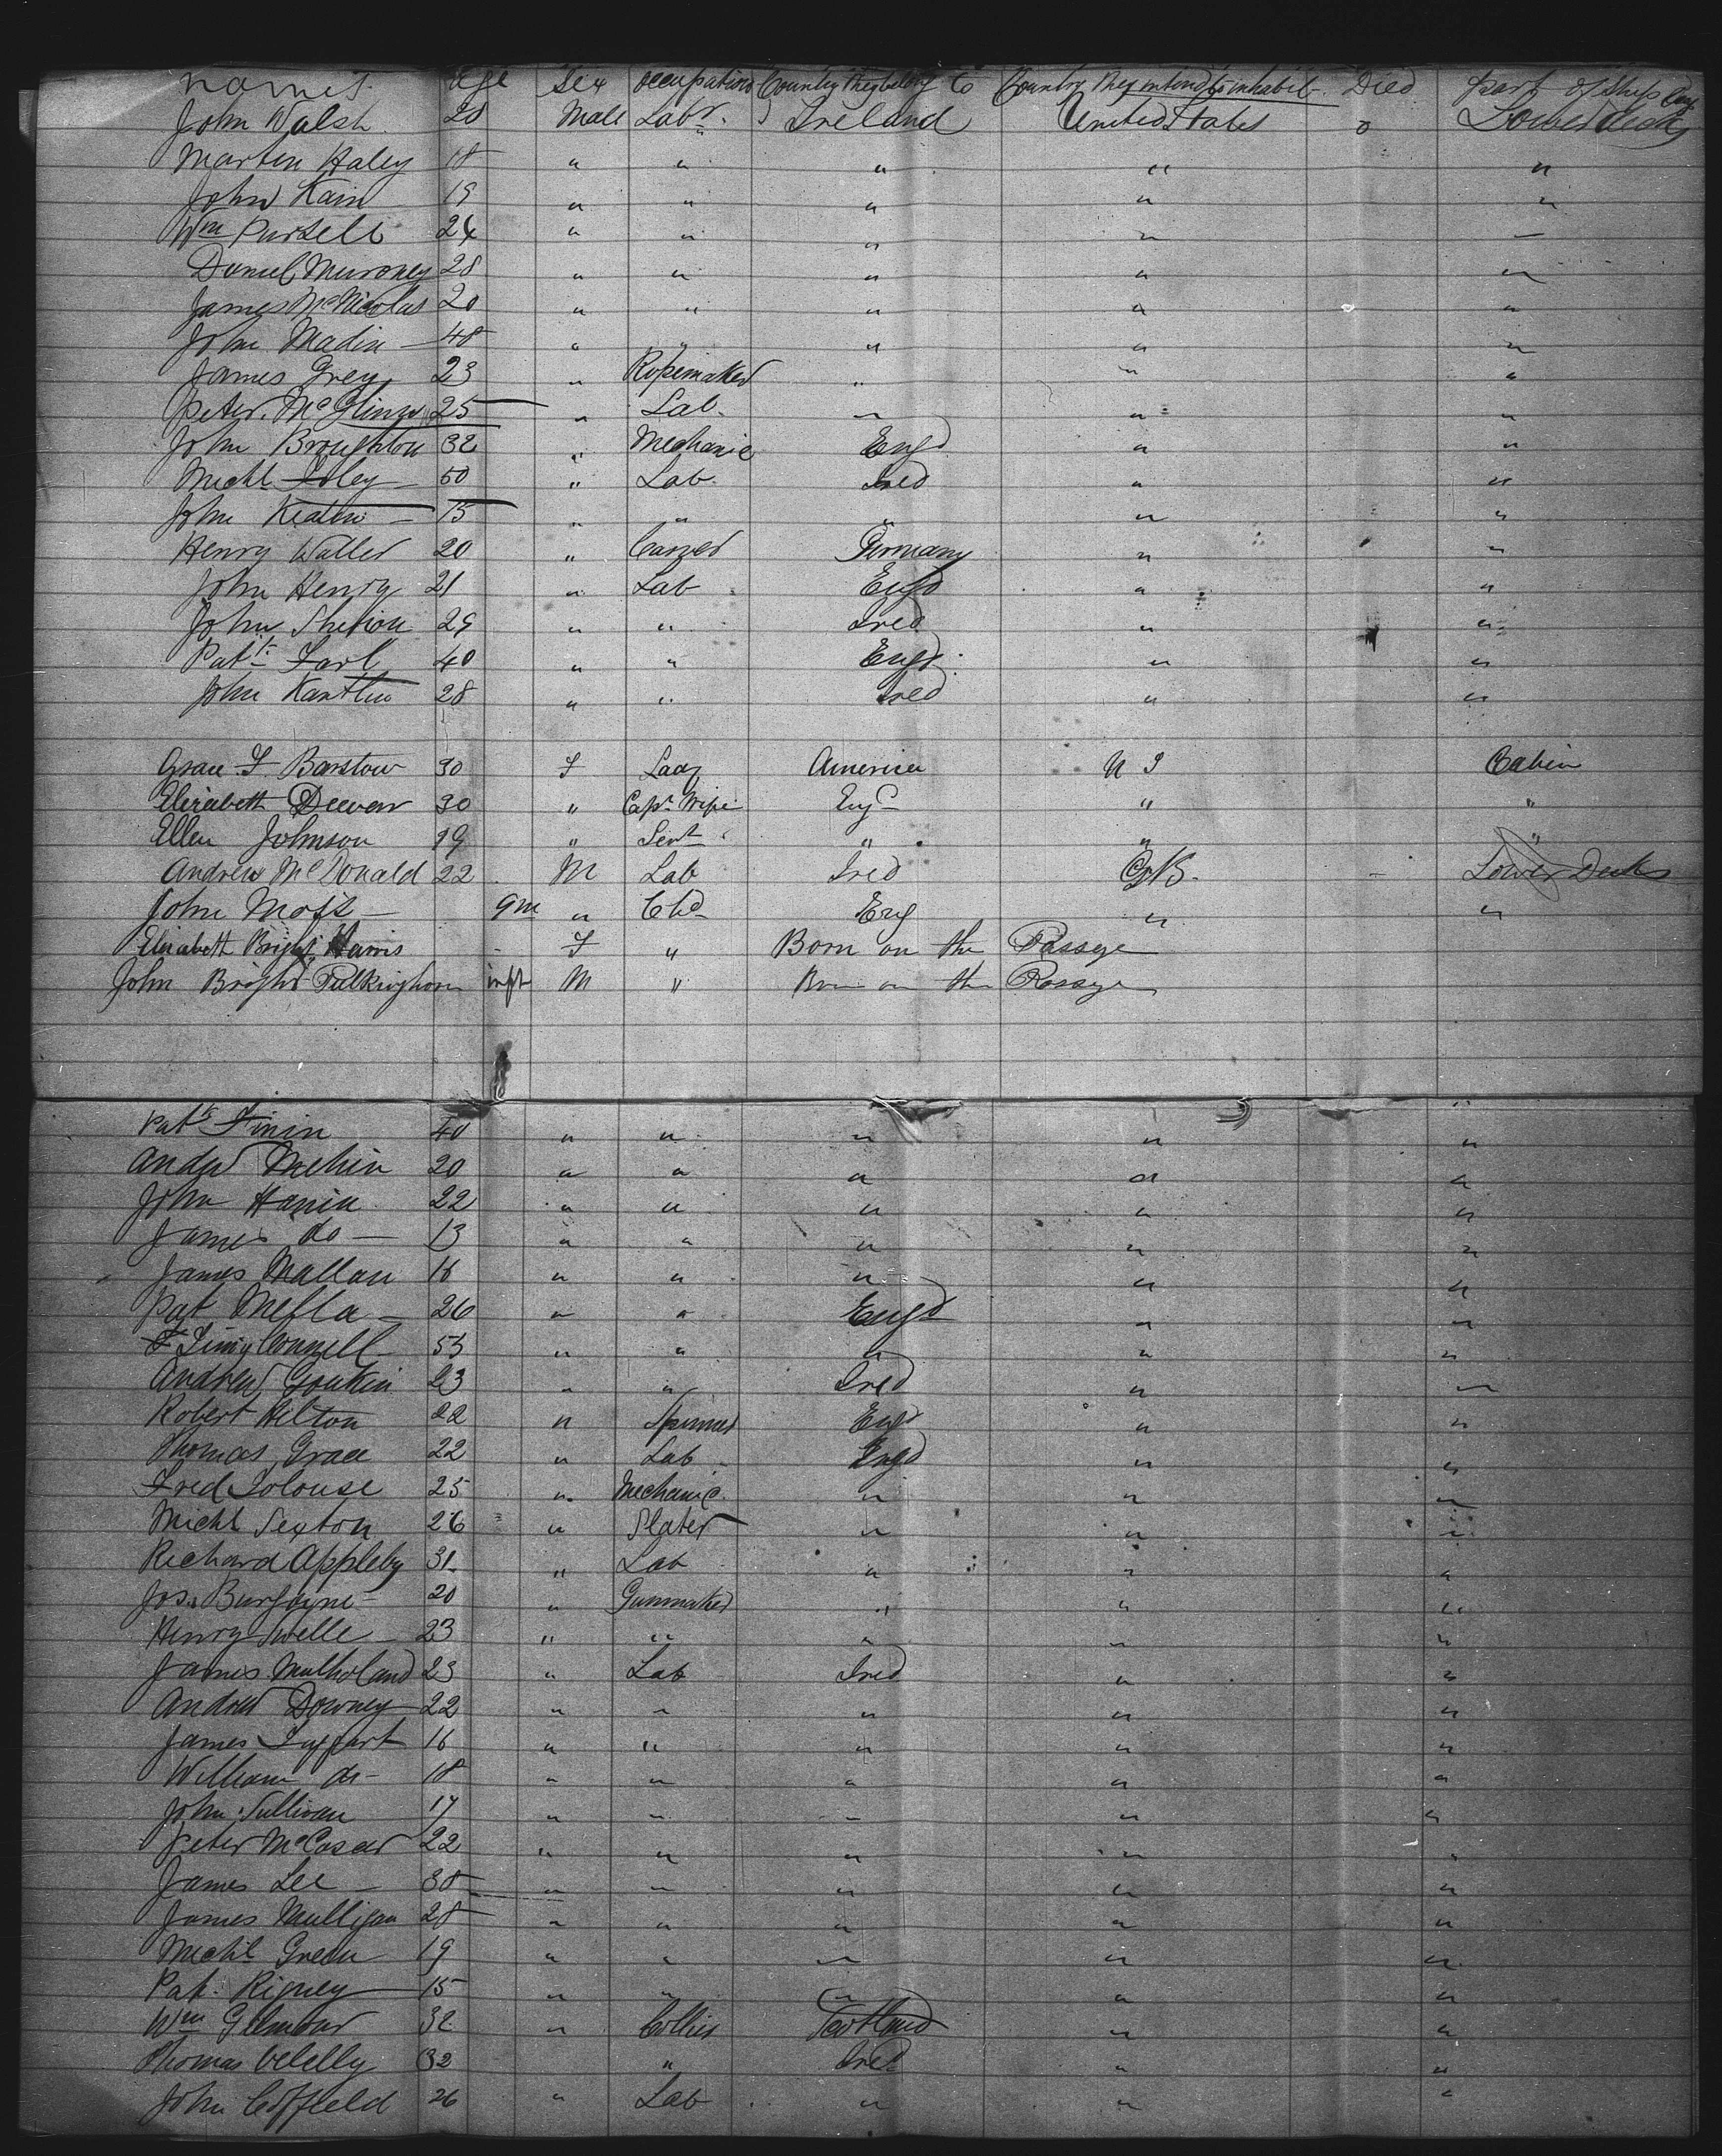 names. Age Sex occupation Country they belong to Country they intend to inhabit Died part of Ship
John Walsh 20 Male Labr. Ireland United States o Lower deck
Marten Haley 18 " " " " "
John Kain 19 " " " " "
Wm Pursell 24 " " " " "
Daniel Muroney 28 " " " " "
James McNicolas 20 " " " " "
John Madin 48 " " " " "
James Grey 23 " Ropemaker " " "
Peter McGlinn 25 " Lab. " " "
John Broughton 32 " Mechanic Engd " "
Michl Foley 50 " Lab. Ired " "
John Keaton 15 " " " " "
Henry Waller 20 " Carver Germany " "
John Henry 21 " Lab Engd " "
John Shehon 29 " " Ired " "
Patk Farl 40 " " Engd " "
John Kanthu 28 " " Ired " "
Grace F Barstow 30 F Lady America U S Cabin
Elizabeth Deevar 30 " Capt Wife Engd " "
Ellen Johnson 19 " Servt " " "
Andrew McDonald 22 M Lab Ired Lower Deck
John Moss 9m " Chd Eng " "
Elizabeth Bright Harris F " Born on the Passage
John Bright Pilkinghorn inft M " Born on the Passage
Patk Finin 40 " " " " "
Andw Mehin 20 " " " " "
John Hanin 22 " " " " "
James do 13 " " " " "
James Mallan 16 " " " " "
Pat Mefla 26 " " Engd " "
Timy Connell 53 " " " " "
Andrew Goukin 23 " " Ired " "
Robert Hilton 22 " Spinner Engd " "
Thomas Grace 22 " Lab Engd " "
Fred Tolouse 25 " Mechanic " " "
Michl Sexton 26 " Slater " " "
Richard Appleby 31 " Lab " " "
Jos. Burgoyne 20 " Gunmaker " " "
Henry Swelle 23 " " " " "
James Mulholand 23 " Lab Ired " "
Andrew Downey 22 " " " " "
James Taggart 16 " " " " "
William do 18 " " " " "
John Sullivan 17 " " " " "
Peter McCosar 22 " " " " "
James Lee 38 " " " " "
James Mulligan 28 " " " " "
Michl Green 19 " " " " "
Pat. Rigney 15 " " " " "
Wm Gilmour 32 " Collier Scotland " "
Thomas Velelly 32 " Ired " "
John Coffield 26 " Lab " " "